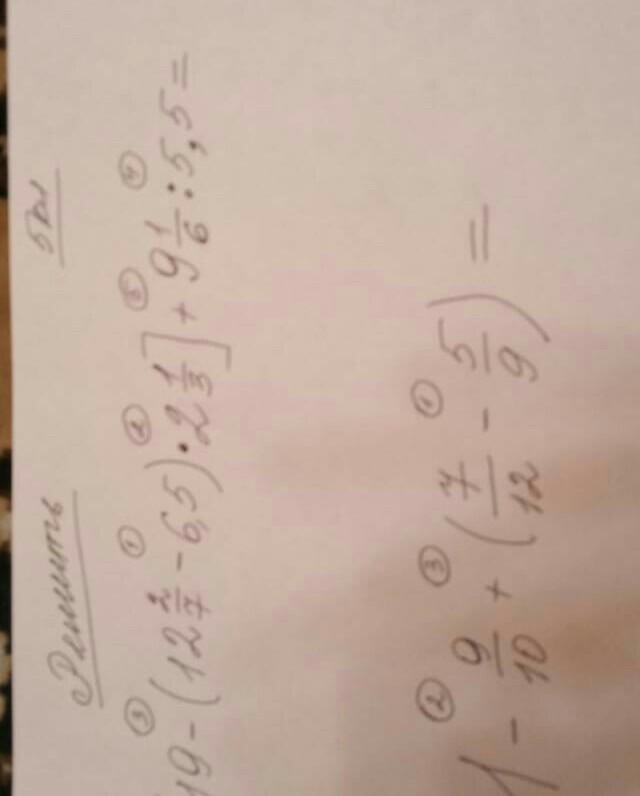 Решить 5 кл
③ ① ② ⑤ ④
19 - (12 2/7 - 6,5) · 2 1/3] + 9 1/6 : 5,5 =
② ③ ①
1 - 9/10 + (7/12 - 5/9) =